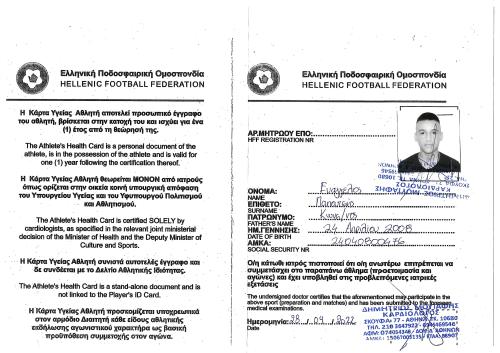 Ελληνική Ποδοσφαιρική Ομοσπονδία
HELLENIC FOOTBALL FEDERATION
Η Κάρτα Υγείας Αθλητή αποτελεί προσωπικό έγγραφο
του αθλητή, βρίσκεται στην κατοχή του και ισχύει για ένα
(1) έτος από τη θεώρησή της.
The Athlete's Health Card is a personal document of the
athlete, is in the possession of the athlete and is valid for
one (1) year following the certification thereof.
Η Κάρτα Υγείας Αθλητή θεωρείται ΜΟΝΟΝ από ιατρούς
όπως ορίζεται στην οικεία κοινή υπουργική απόφαση
του Υπουργείου Υγείας και του Υφυπουργού Πολιτισμού
και Αθλητισμού.
The Athlete's Health Card is certified SOLELY by
cardiologists, as specified in the relevant joint ministerial
decision of the Minister of Health and the Deputy Minister of
Culture and Sports.
Η Κάρτα Υγείας Αθλητή συνιστά αυτοτελές έγγραφο και
δε συνδέεται με το Δελτίο Αθλητικής Ιδιότητας.
The Athlete's Health Card is a stand-alone document and is
not linked to the Player's ID Card.
Η Κάρτα Υγείας Αθλητή προσκομίζεται υποχρεωτικά
στον αρμόδιο Διαιτητή κάθε είδους αθλητικής
εκδήλωσης αγωνιστικού χαρακτήρα ως βασική
προϋπόθεση συμμετοχής στον αγώνα.
Ελληνική Ποδοσφαιρική Ομοσπονδία
HELLENIC FOOTBALL FEDERATION
ΑΡ.ΜΗΤΡΩΟΥ ΕΠΟ:
HFF REGISTRATION NR
ΟΝΟΜΑ: Ευάγγελος
NAME
ΕΠΩΝΥΜΟ:
SURNAME
ΠΑΤΡΩΝΥΜΟ: Κων/νος
FATHER'S NAME
ΗΜ.ΓΕΝΝΗΣΗΣ: 24 Απριλίου 2008
DATE OF BIRTH
ΑΜΚΑ: 24040800476
SOCIAL SECURITY NR
Ο/η κάτωθι ιατρός πιστοποιεί ότι ο/η ανωτέρω επιτρέπεται να
συμμετάσχει στο παραπάνω άθλημα (προετοιμασία και
αγώνες) και έχει υποβληθεί στις προβλεπόμενες ιατρικές
εξετάσεις
The undersigned doctor certifies that the aforementioned may participate in the
above sport (preparation and matches) and has been submitted to the
medical examinations.
Ημερομηνία: 28 / 09 / 2022
Date
ΔΗΜΗΤΡΙΟΣ
ΚΑΡΔΙΟΛΟΓΟΣ
ΣΚΟΥΦΑ 77 - ΑΘΗΝΑ ΤΚ. 10680